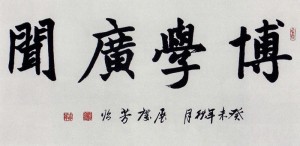 博學廣聞
癸未年秋月